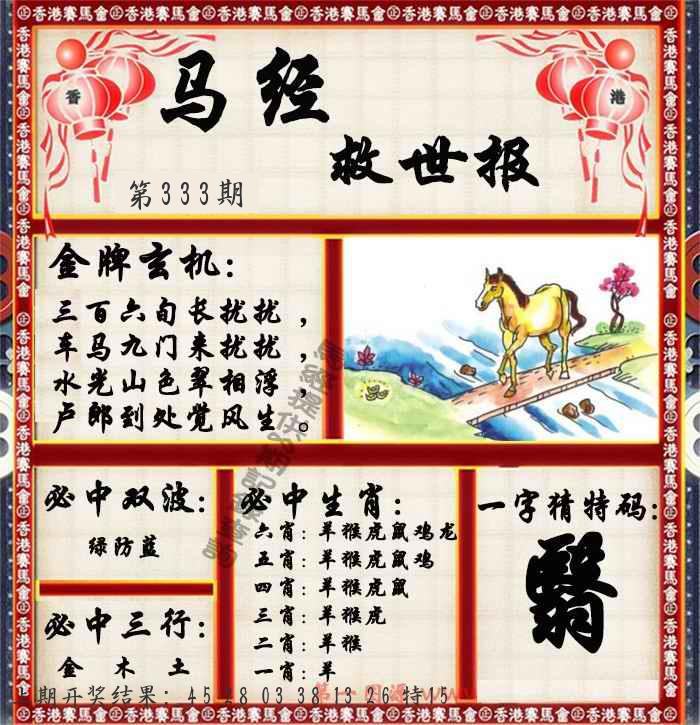 香港賽馬會
香
港
马经
救世报
第333期
金牌玄机：
三百六旬长扰扰，
车马九门来扰扰，
水光山色翠相浮，
卢郎到处觉风生。
必中双波：
绿防蓝
必中三行：
金 木 土
必中生肖：
六肖：羊猴虎鼠鸡龙
五肖：羊猴虎鼠鸡
四肖：羊猴虎鼠
三肖：羊猴虎
二肖：羊猴
一肖：羊
一字猜特码：
翳
期开奖结果：45 28 03 38 13 26特15